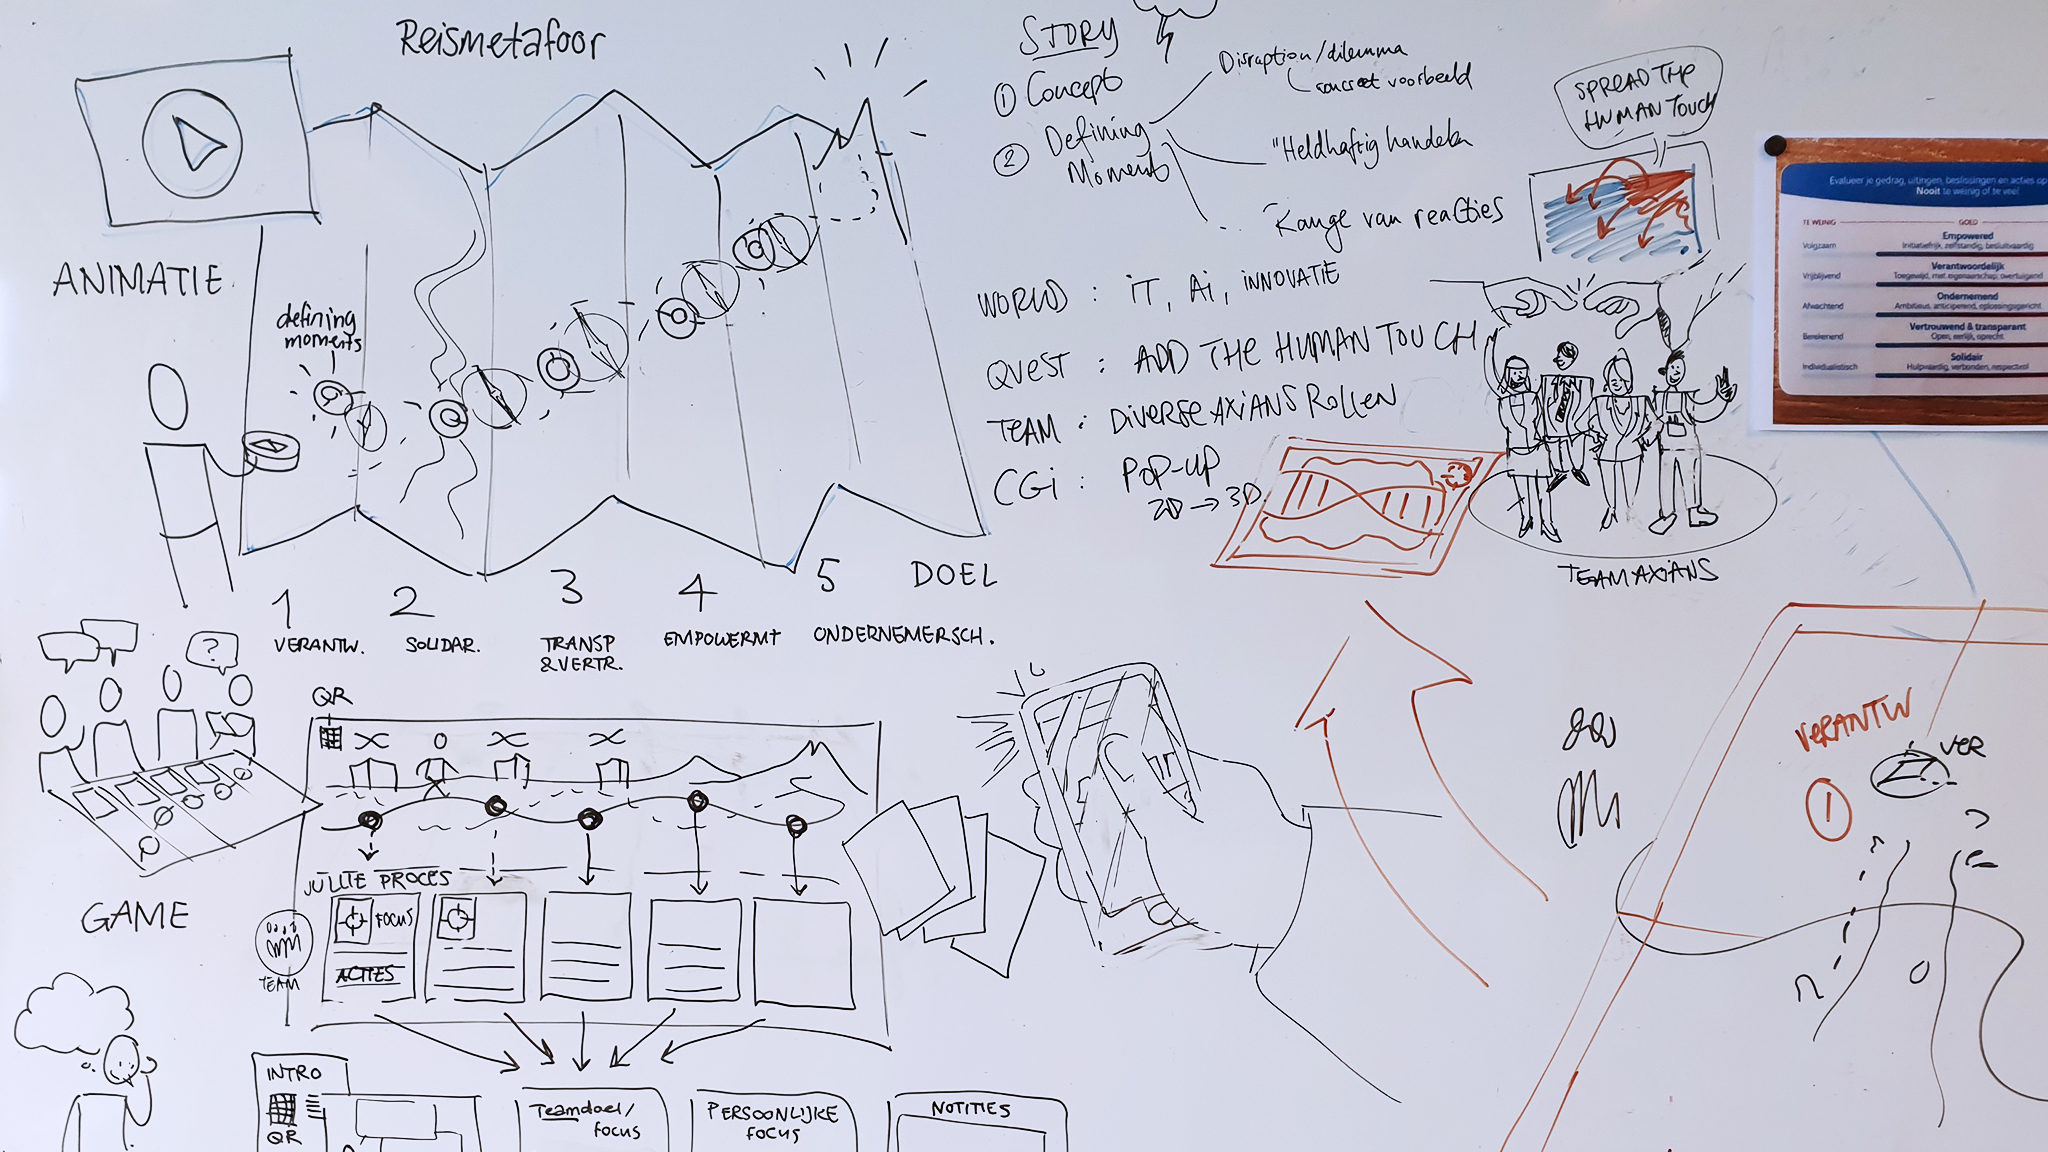 Reismetafoor
ANIMATIE
defining
moments
1
2
3
4
5
DOEL
VERANTW.
SOLIDAR.
TRANSP
& VERTR.
EMPOWERMT
ONDERNEMERSCH.
STORY
① Concept
② Defining
Moment
Disruption/dilemma
concreet voorbeeld
"Heldhaftig handelen
Range van reacties
WORLD : IT, Ai, INNOVATIE
QUEST : ADD THE HUMAN TOUCH
TEAM : DIVERSE AXIANS ROLLEN
CGi : POP-UP
2D → 3D
SPREAD THE
HUMAN TOUCH
TEAM AXIANS
Evalueer je gedrag, uitingen, beslissingen en acties op
Nooit te weinig of te veel
TE WEINIG
GOED
Volgzaam
Empowered
Initiatiefrijk, zelfstandig, besluitvaardig
Vrijblijvend
Verantwoordelijk
Toegewijd, met eigenaarschap, overtuigend
Afwachtend
Ondernemend
Ambitieus, anticiperend, oplossingsgericht
Berekenend
Vertrouwend & transparant
Open, eerlijk, oprecht
Individualistisch
Solidair
Hulpvaardig, verbonden, respectvol
?
GAME
QR
JULLIE PROCES
FOCUS
ACTIES
TEAM
INTRO
QR
Teamdoel/
focus
PERSOONLIJKE
FOCUS
NOTITIES
VERANTW
①
VER